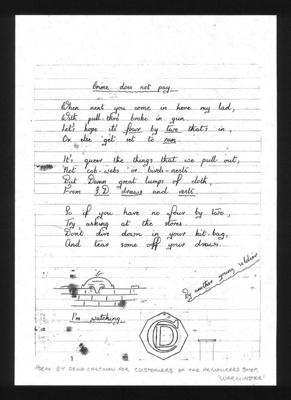 Crime does not pay.
When next you come in here my lad,
With pull-thro' broke in gun
Let's hope it's four by two that's in,
Or else get set to run.
It's queer the things that we pull out,
Not cob-webs or birds-nests
But Damn great lumps of cloth,
From P.D. draws and vests.
So if you have no four by two,
Try asking at the stores
Don't dive down in your kit-bag,
And tear some off your draws.
By another young soldier
I'm watching.
POEM BY CHEESMAN FOR CUSTOMERS OF THE ARMOURERS SHOP,
'WARMINSTER'